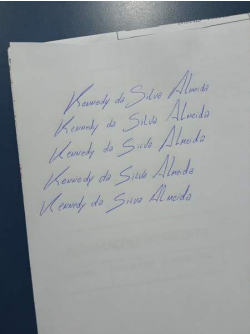 Kennedy da Silva Almeida
Kennedy da Silva Almeida
Kennedy da Silva Almeida
Kennedy da Silva Almeida
Kennedy da Silva Almeida